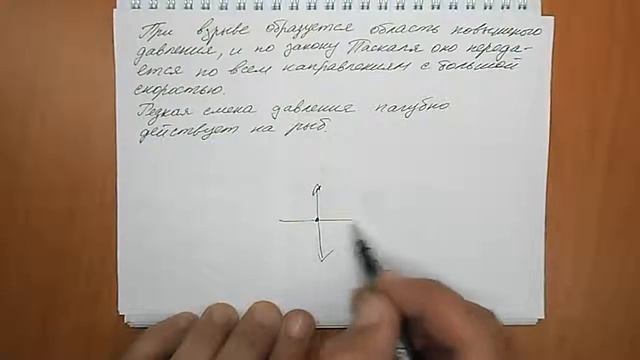 При взрыве образуется область повышеного
давления, и по закону Паскаля оно переда-
ется по всем направлениям с большой
скоростью.
Резкая смена давления пагубно
действует на рыб.